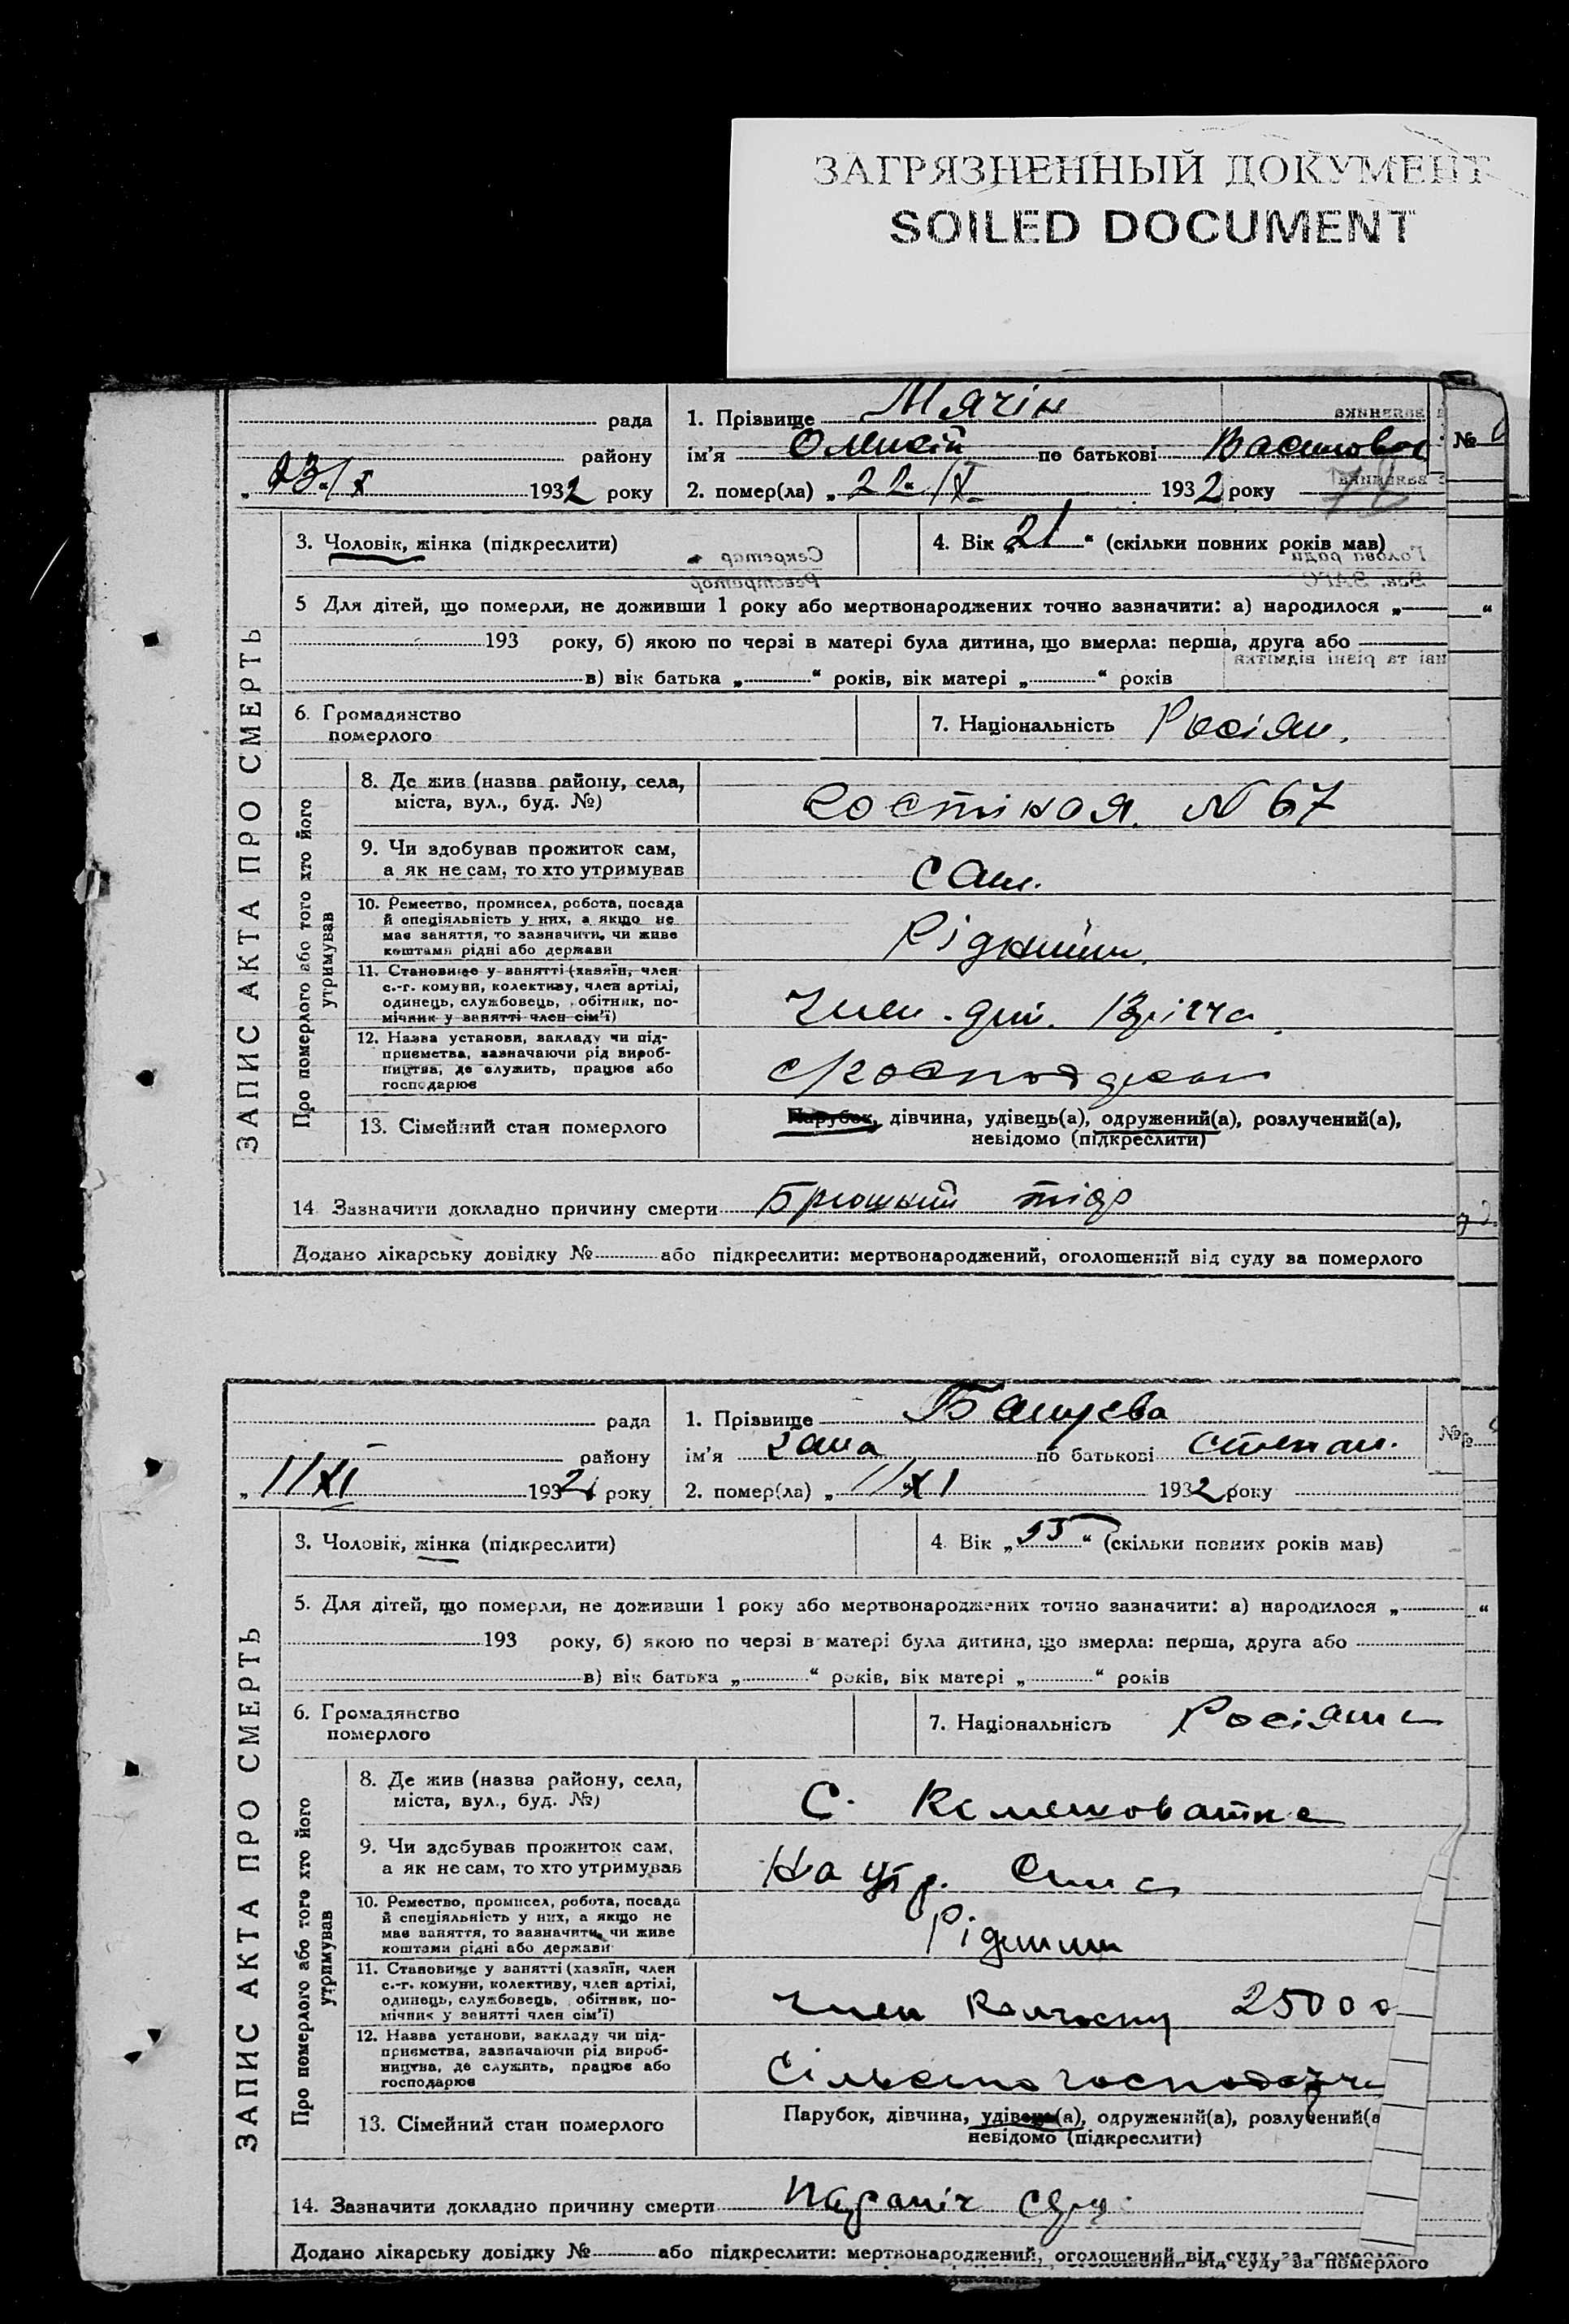 ЗАГРЯЗНЕННЫЙ ДОКУМЕНТ
SOILED DOCUMENT
рада
1. Прізвище Мячін
району
ім'я по батькові
№
„23“/X 1932 року
2. помер(ла) „22“/X 1932 року
3. Чоловік, жінка (підкреслити)
4. Вік „21“ (скільки повних років мав)
Секретар
Реєстратор
Голова ради
Зав. ЗАГС
5 Для дітей, що померли, не доживши 1 року або мертвонароджених точно зазначити: а) народилося „ “
193 року, б) якою по черзі в матері була дитина, що вмерла: перша, друга або
в) вік батька „ “ років, вік матері „ “ років
6. Громадянство
померлого
7. Національність Росіян.
ЗАПИС АКТА ПРО СМЕРТЬ
Про померлого або того хто його
утримував
8. Де жив (назва району, села,
міста, вул., буд. №)
№ 67
9. Чи здобував прожиток сам,
а як не сам, то хто утримував
сам.
10. Ремество, промисел, робота, посада
й спеціяльність у них, а якщо не
має заняття, то зазначити, чи живе
коштами рідні або держави
11. Становище у занятті (хазяїн, член
с.-г. комуни, колективу, член артілі,
одинець, службовець, обітник, по-
мічник у занятті член сім'ї)
член
12. Назва установи, закладу чи під-
приємства, зазначаючи рід вироб-
ництва, де служить, працює або
господарює
13. Сімейний стан померлого
Парубок, дівчина, удівець(а), одружений(а), розлучений(а),
невідомо (підкреслити)
14 Зазначити докладно причину смерти Брюшний тіф
Додано лікарську довідку № або підкреслити: мертвонароджений, оголошений від суду за померлого
рада
1. Прізвище
№
району
ім'я по батькові Степан.
„11/XI 1932 року
2. помер(ла) „11/XI 1932 року
3. Чоловік, жінка (підкреслити)
4. Вік „55“ (скільки повних років мав)
5. Для дітей, що померли, не доживши 1 року або мертвонароджених точно зазначити: а) народилося „ “
193 року, б) якою по черзі в матері була дитина, що вмерла: перша, друга або
в) вік батька „ “ років, вік матері „ “ років
6. Громадянство
померлого
7. Національність
ЗАПИС АКТА ПРО СМЕРТЬ
Про померлого або того хто його
утримував
8. Де жив (назва району, села,
міста, вул., буд. №)
С.
9. Чи здобував прожиток сам,
а як не сам, то хто утримував
На утр. сина
10. Ремество, промисел, робота, посада
й спеціяльність у них, а якщо не
має заняття, то зазначити, чи живе
коштами рідні або держави
11. Становище у занятті (хазяїн, член
с.-г. комуни, колективу, член артілі,
одинець, службовець, обітник, по-
мічник у занятті член сім'ї)
член колгоспу 25000
12. Назва установи, закладу чи під-
приємства, зазначаючи рід вироб-
ництва, де служить, працює або
господарює
13. Сімейний стан померлого
Парубок, дівчина, удівець(а), одружений(а), розлучений(а
невідомо (підкреслити)
14. Зазначити докладно причину смерти Параліч серц.
Додано лікарську довідку № або підкреслити: мертвонароджений, оголошений від суду за померлого